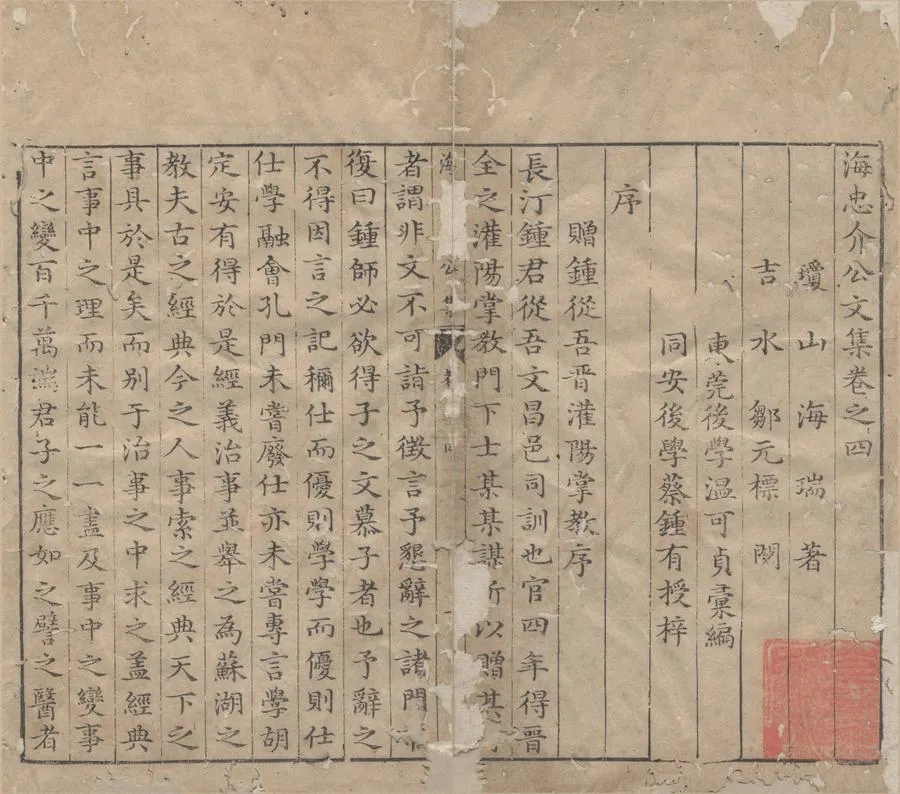 海忠介公文集卷之四
瓊山海瑞著
吉水鄒元標閱
東莞後學温可貞彙編
同安後學蔡鍾有授梓
序
贈鍾從吾晋灌陽掌教序
長汀鍾君從吾文昌邑司訓也官四年得晋
全之灌陽掌教門下士某某謀所以贈其
海公
者謂非文不可詣予徵言予懇辭之諸門
復曰鍾師必欲得子之文慕子者也予辭之
不得因言之記稱仕而優則學學而優則仕
仕學融會孔門未嘗廢仕亦未嘗專言學胡
定安有得於是經義治事並舉之為蘇湖之
教夫古之經典今之人事索之經典天下之
事具於是矣而别于治事之中求之盖經典
言事中之理而未能一一盡及事中之變事
中之變百千萬端君子之應如之譬之醫者